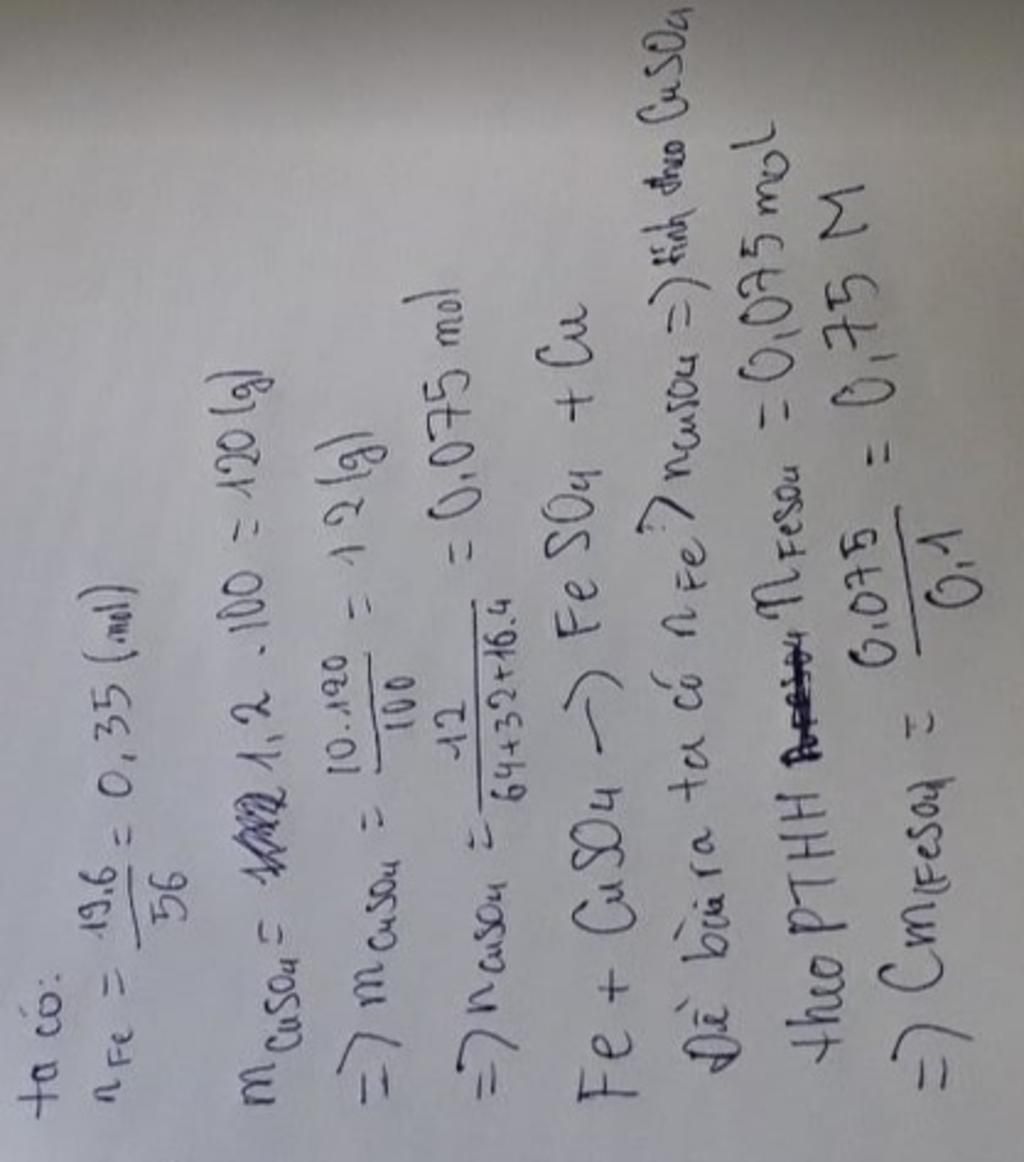 ta có:
n Fe = 19,6/56 = 0,35 (mol)
m CuSO4 = 1,2 . 100 = 120 (g)
=> m CuSO4 = 10.120/100 = 12 (g)
=> n CuSO4 = 12/64+32+16.4 = 0,075 mol
Fe + CuSO4 -> FeSO4 + Cu
Đề bài ra ta có n Fe > n CuSO4 => tính theo CuSO4
theo PTHH n FeSO4 = 0,075 mol
=> Cm(FeSO4 = 0,075/0,1 = 0,75 M